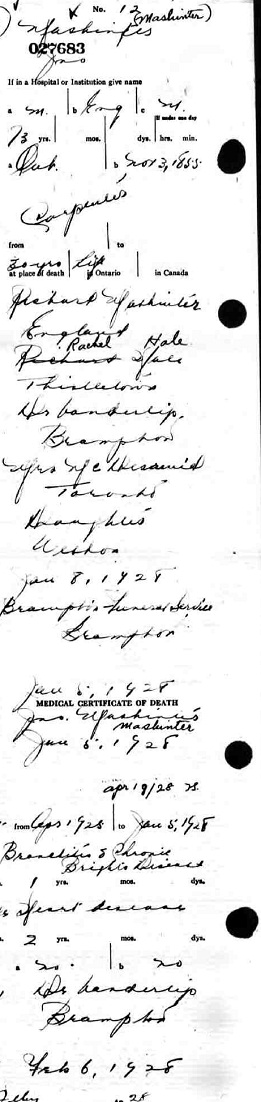 No. 12
(Mashinter)
Mashinter
027683
Jno
If in a Hospital or Institution give name
a M. b Eng c M.
If under one day
73 yrs. mos. dys. hrs. min.
a Ont. b Nov 3, 1855
Carpenter
from to
30 yrs life
at place of death in Ontario in Canada
Richard Mashinter
England
Rachel Hale
Thistletown
Dr Vanderlip.
Brampton
Mrs
Toronto
Daughter
Weston
Jan 8, 1928
Brampton Funeral Service
Brampton
Jan 5, 1928
MEDICAL CERTIFICATE OF DEATH
Jno. Mashinter
Mashinter
Jan 5, 1928
apr 19/28
from 1928 to Jan 5, 1928
Bronchitis & Chronic
Brights Disease
1 yrs. mos. dys.
Heart disease
2 yrs. mos. dys.
a no. b no
Dr Vanderlip
Brampton
Feb 6, 1928
28